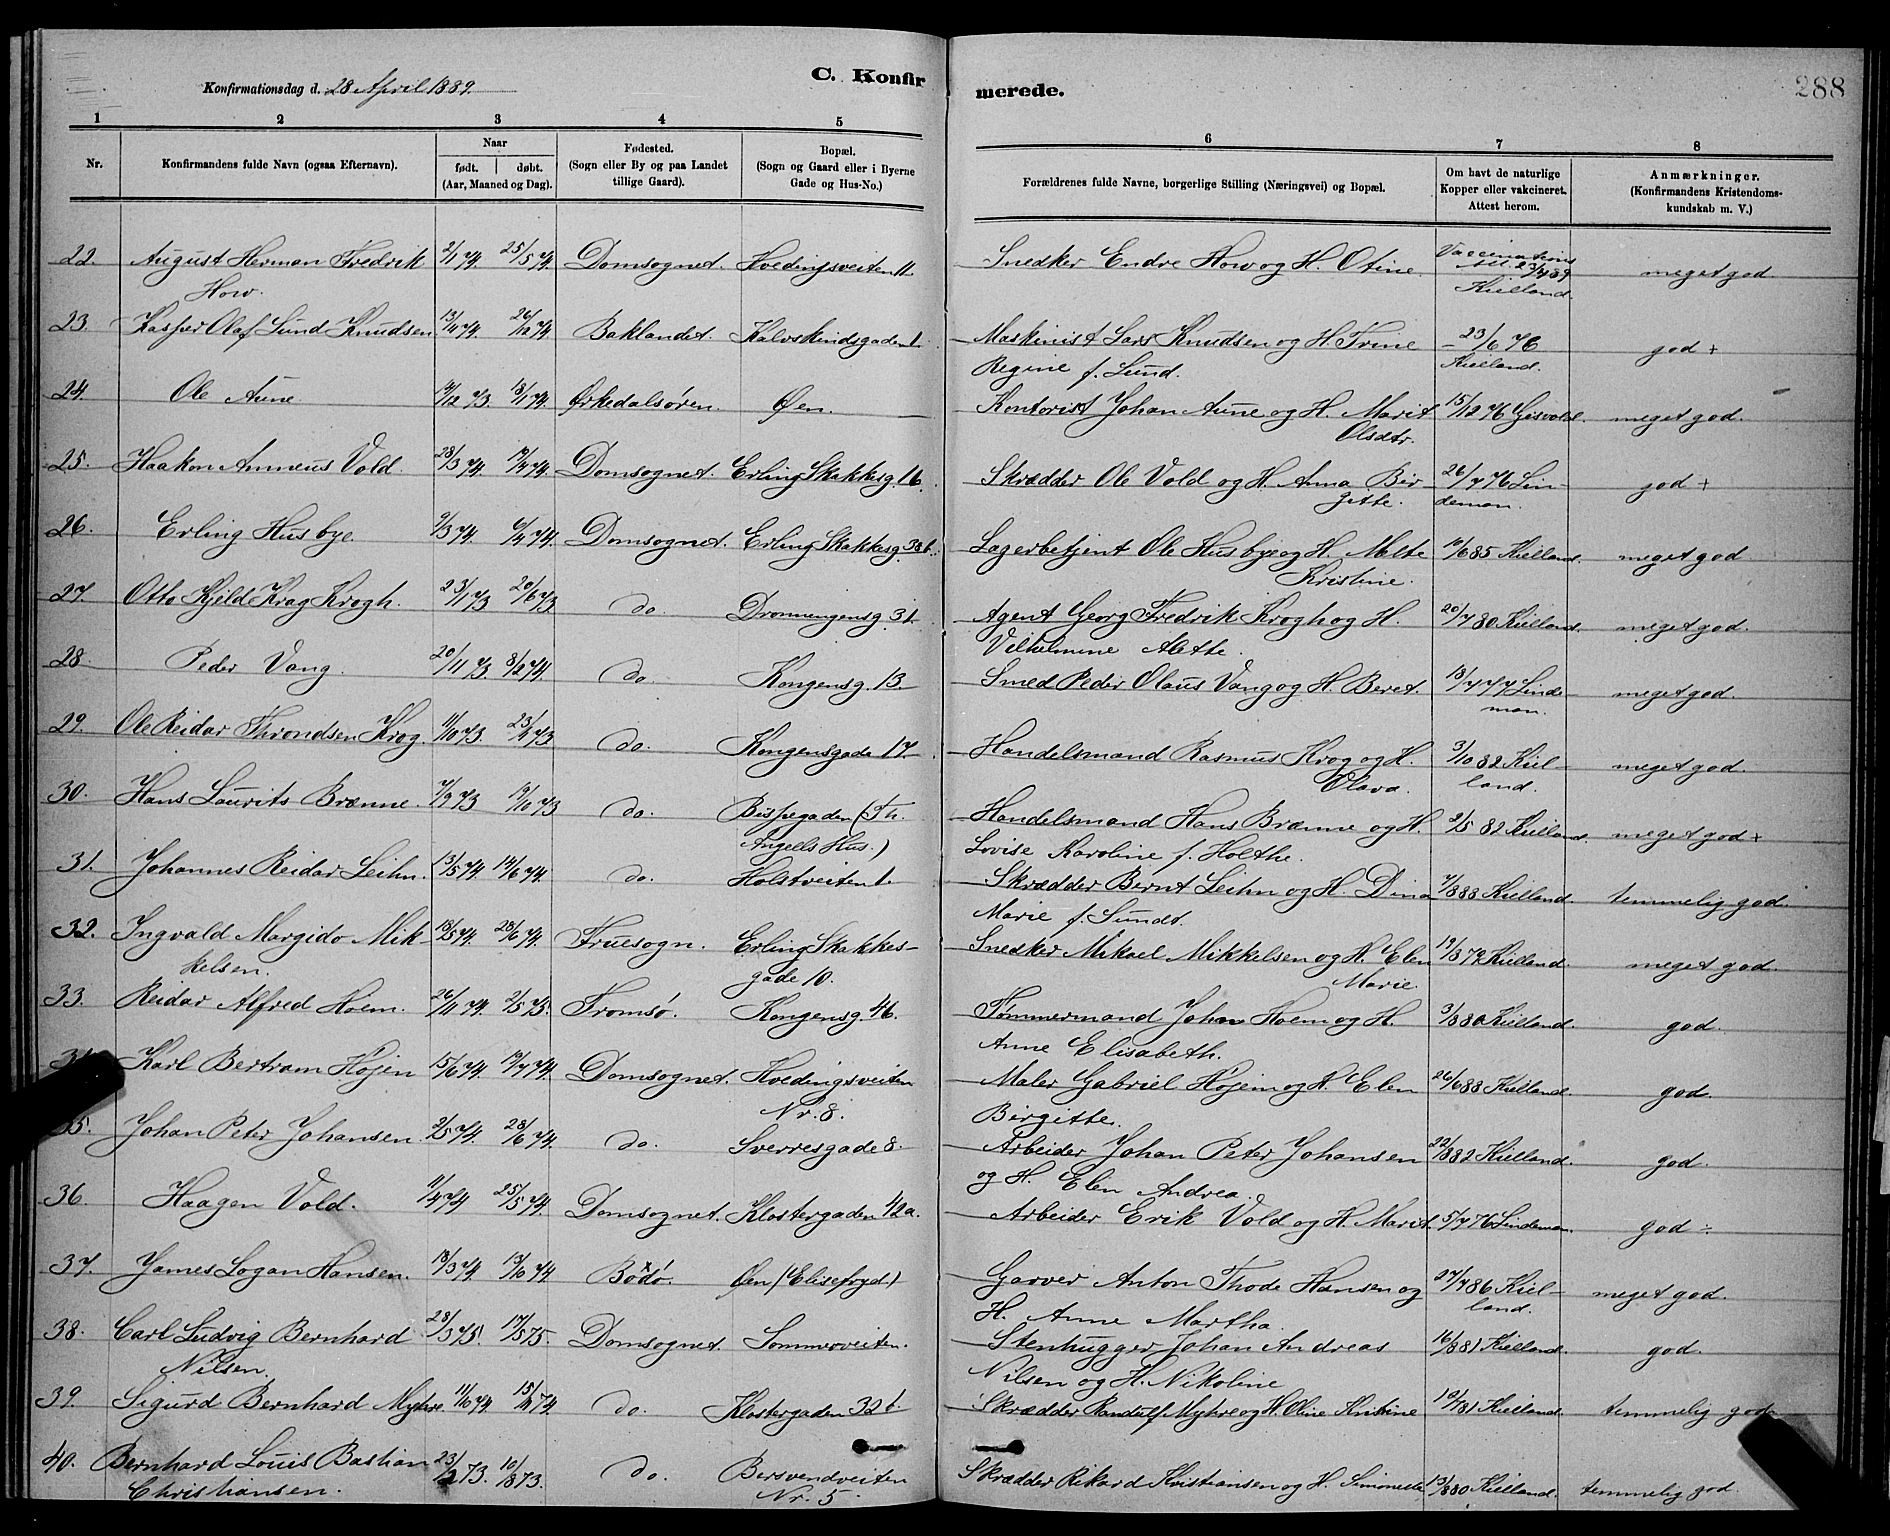 288
C. Konfirmerede.
Konfirmationsdag d. 28 April 1889.
1 2 3 4 5 6 7 8
Nr.
Konfirmandens fulde Navn (ogsaa Efternavn).
Naar
født. døbt.
(Aar, Maaned og Dag).
Fødested.
(Sogn eller By og paa Landet
tillige Gaard).
Bopæl.
(Sogn og Gaard eller i Byerne
Gade og Hus-No.)
Forældrenes fulde Navne, borgerlige Stilling (Næringsvei) og Bopæl.
Om havt de naturlige
Kopper eller vakcineret.
Attest herom.
Anmærkninger.
(Konfirmandens Kristendoms-
kundskab m. V.)
22. August Herman Fredrik 2/1 74. 25/5 74. Domsognet. Hvedingsveiten 11. Snedker Endre How og H. Otine. Vaccinations meget god
How. Att. 23/4 89
Kielland.
23. Kasper Olaf Lund Knudsen 13/11 74. 26/12 74. Baklandet. Kalvskindsgaden 1. Maskinist Lars Knudsen og H. Trine 23/6 76 god +
Regine f. Lund. Kielland.
24. Ole Aune 73. 74. Ørkedalsøren. Øen. Kontorist Johan Aune og H. Marit 15/12 76 Gisvold. meget god.
Olsdtr.
25. Haakon Anneus Vold. 28/3 74. 74. Domsognet. Erling Skakkesg. 16. Skrædder Ole Vold og H. Anna Bir- 26/7 76 Lin- god +
gitte. deman.
26. Erling Husbye 9/3 74. 6/4 74. Domsognet. Erling Skakkesg. 38b. Lagerbetjent Ole Husbye og H. Mette 85 Kielland. meget god
Kristine.
27. Otto Kjeld Krag Krogh. 23/1 73 20/6 73 do Dronningensg. 31. Agent Georg Fredrik Krogh og H. 20/7 80 Kielland. meget god.
Vilhelmine Alette.
28. Peder Vang. 20/11 73 8/2 74. do Kongensg. 13. Smed Peder Olaus Vang og H. Beret. 13/7 77 Linde- meget god.
man.
29. Ole Reidar Throndsen Krog. 11/10 73. 23/11 73 do. Kongensgade 17. Handelsmand Rasmus Krog og H. 3/10 82 Kiel- meget god.
Olava. land.
30. Hans Laurits Brænne. 7/9 73 19/10 73 do. Bispegaden (Th. Handelsmand Hans Brænne og H. 2/5 82 Kielland. meget god +
Angells Hus.) Lovise Karoline f. Holthe.
31. Johannes Reidar Leihn. 13/5 74 14/6 74. do. Holstveiten 1. Skrædder Bernt Leihn og H. Dina 7/8 88 Kielland. temmelig god.
Marie f. Sundt.
32. Ingvald Margido Mik- 18/5 74. 28/6 74. Fruesogn. Erling Skakkes- Snedker Mikael Mikkelsen og H. Elen Kielland. meget god.
kelsen. gade 10. Marie.
33. Reidar Alfred Hoem. 26/11 74. 2/5 75. Tromsø. Kongensg. 46. Tømmermand Johan Hoem og H. 3/8 80 Kielland. god.
Anne Elisabeth.
Karl Bertram Højen 15/6 74. 19/7 74. Domsognet. Hvedingsveiten Maler Gabriel Højem og H. Elen 26/6 88 Kielland. god.
Nr. 8. Birgitte.
35. Johan Peter Johansen 2/5 74. 28/6 74. do. Sverresgade 8. Arbeider Johan Peter Johansen 22/8 82 Kielland. god.
og H. Elen Andrea.
36. Haagen Vold. 11/4 74 25/5 74. Domsognet. Klostergaden 42a. Arbeider Erik Vold og H. Marit 5/7 76 Lindeman. god ÷
37. James Logan Hansen. 18/3 74. 13/10 74 Bodø. Øen (Elisefryd) Garver Anton Thode Hansen og 27/7 86 Kiel- meget god.
H. Anne Martha. land.
38. Carl Ludvig Bernhard 28/3 75. 17/5 75. Domsognet. Sommerveiten. Stenhugger Johan Andreas 16/8 81 Kielland. god.
Nilsen. Nilsen og H. Nikoline
39. Sigurd Bernhard Myhre 11/10 74. 15/11 74. do. Klostergaden 32 b. Skrædder Randulf Myhre og H. Oline Kristine 81 Kielland. temmelig god
40. Bernhard Louis Bastian 23/2 73. 10/8 73. do. Bersvendveiten Skrædder Rikard Kristiansen og H. Simonette 13/8 80 Kielland. temmelig god.
Christiansen. Nr. 5.